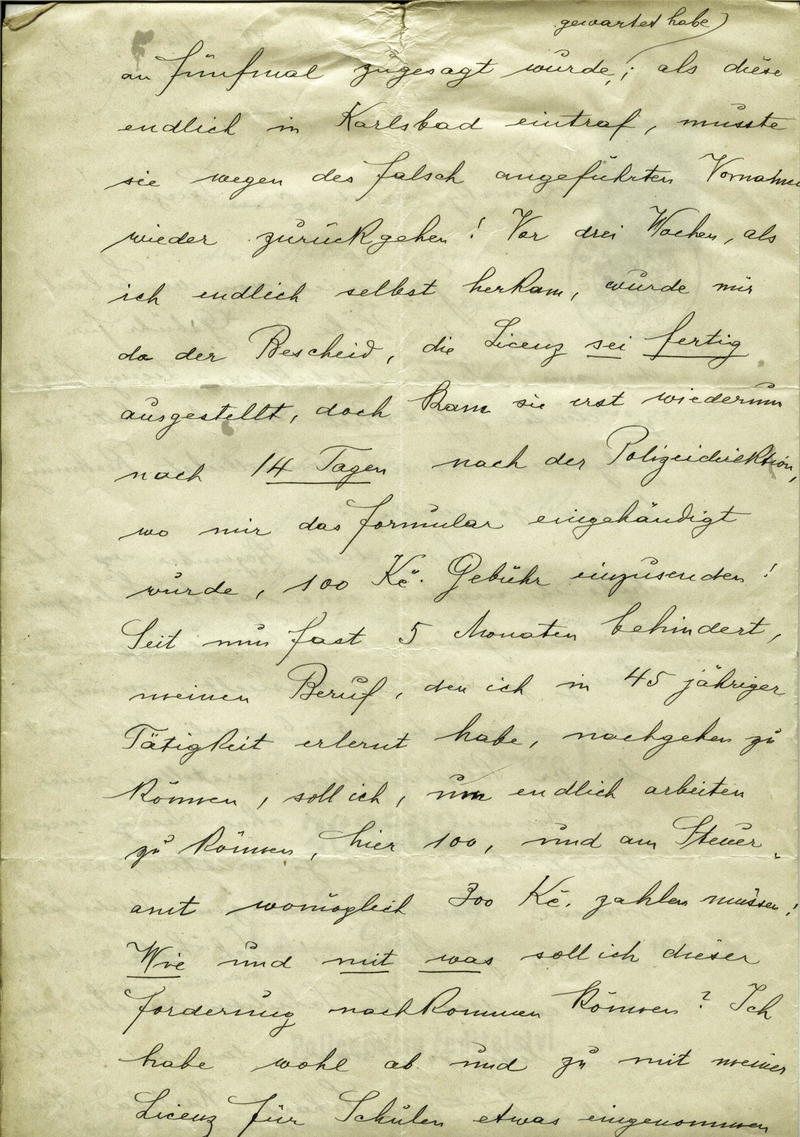 gewartet habe)
an fünfmal zugesagt wurde; als diese
endlich in Karlsbad eintraf, musste
sie wegen des falsch angeführten Vornahm
wieder zurückgehen! Vor drei Wochen, als
ich endlich selbst herkam, wurde mir
da der Bescheid, die Licenz sei fertig
ausgestellt, doch kam sie erst wiederum
nach 14 Tagen nach der Polizeidirektion,
wo mir das Formular eingehändigt
wurde, 100 Kč. Gebühr einzusenden!
Seit nun fast 5 Monaten behindert,
meinen Beruf, den ich in 45 jähriger
Tätigkeit erlernt habe, nachgehen zu
können, soll ich, um endlich arbeiten
zu können, hier 100, und am Steuer-
amt womöglich 300 Kč. zahlen müssen!
Wie und mit was soll ich dieser
Forderung nachkommen können? Ich
habe wohl ab und zu mit meiner
Licenz für Schulen etwas eingenommen